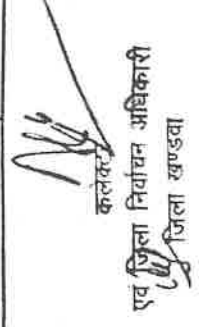 कलेक्टर
एवं जिला निर्वाचन अधिकारी
जिला खण्डवा